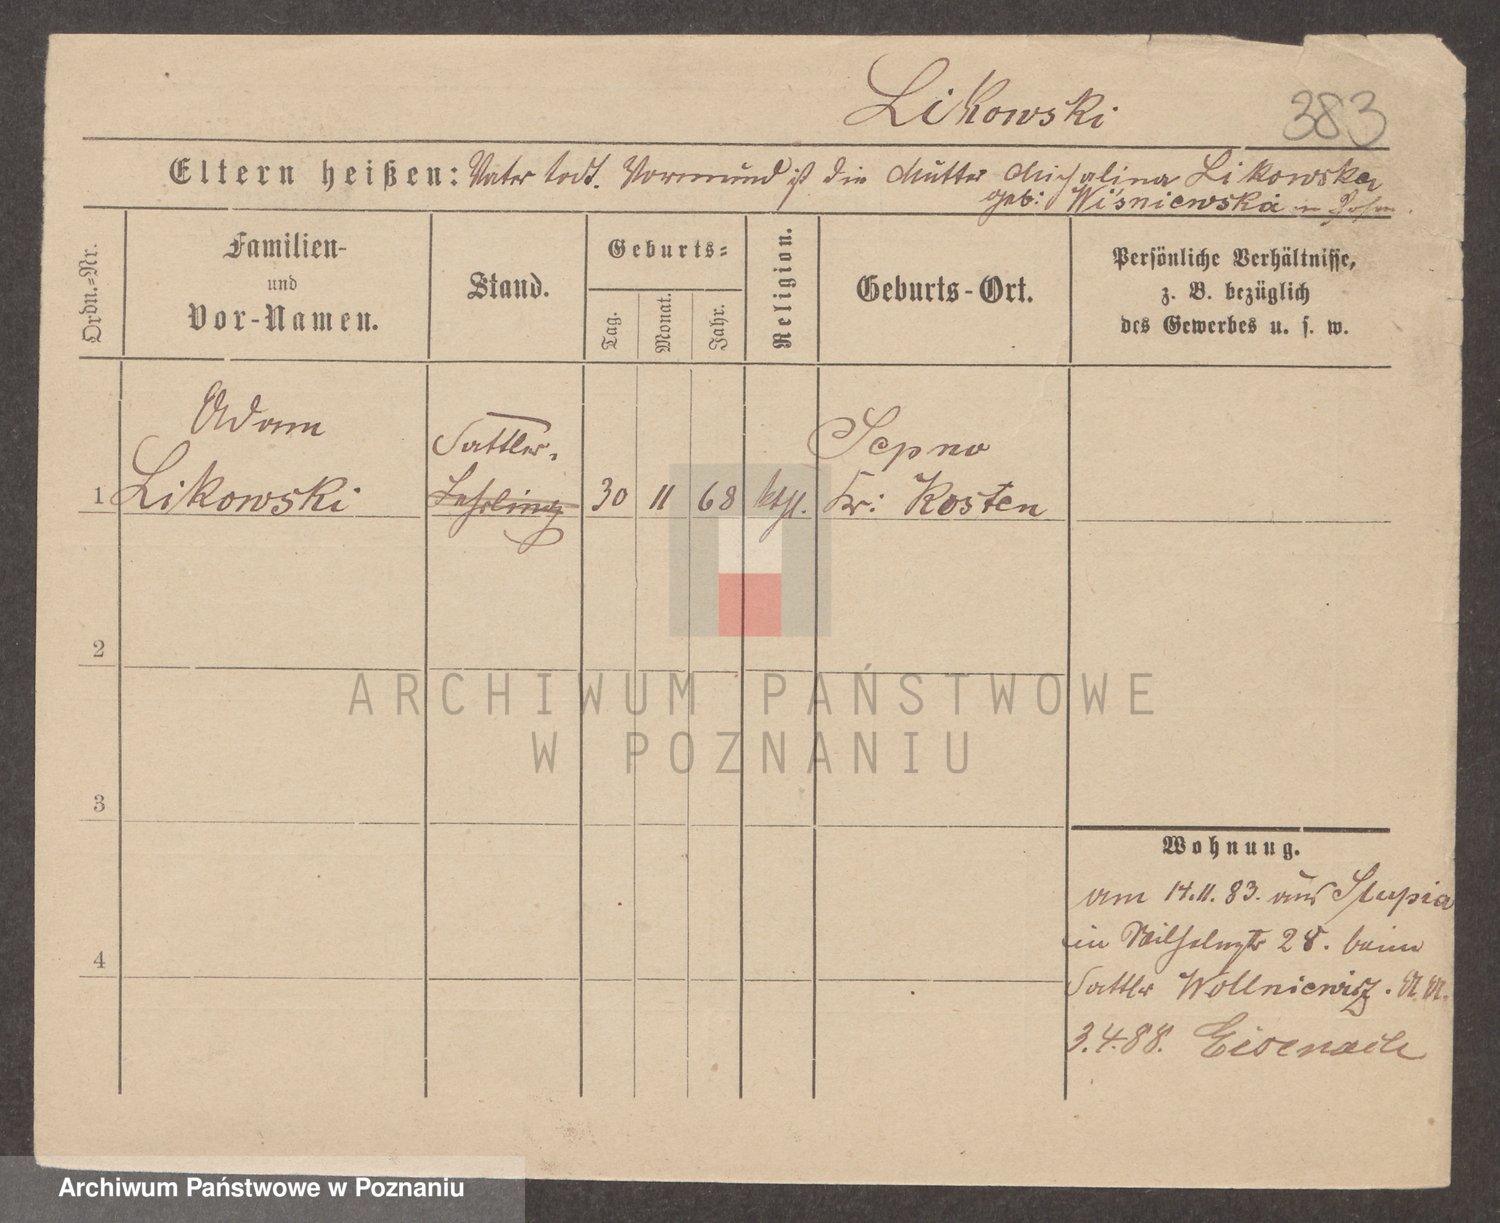 Likowski
383
Eltern heißen: Vater todt. Vormund ist die Mutter Michalina Likowska
geb: Wiśniewska in Posen.
Ordn.=Nr.
Familien-
und
Vor-Namen.
Stand.
Geburts=
Tag.
Monat.
Jahr.
Religion.
Geburts-Ort.
Persönliche Verhältnisse,
z. B. bezüglich
des Gewerbes u. s. w.
Adam
Likowski
Sattler-
Lehrling
1
30
11
68
kthl.
Sepno
Kr: Kosten
2
3
4
Wohnung.
am 14.11.83. aus Slupia
in Wilhelmstr 28. beim
Sattler Wollniewicz. A. M.
3.4.88. Eisenach
ARCHIWUM PAŃSTWOWE
W POZNANIU
Archiwum Państwowe w Poznaniu